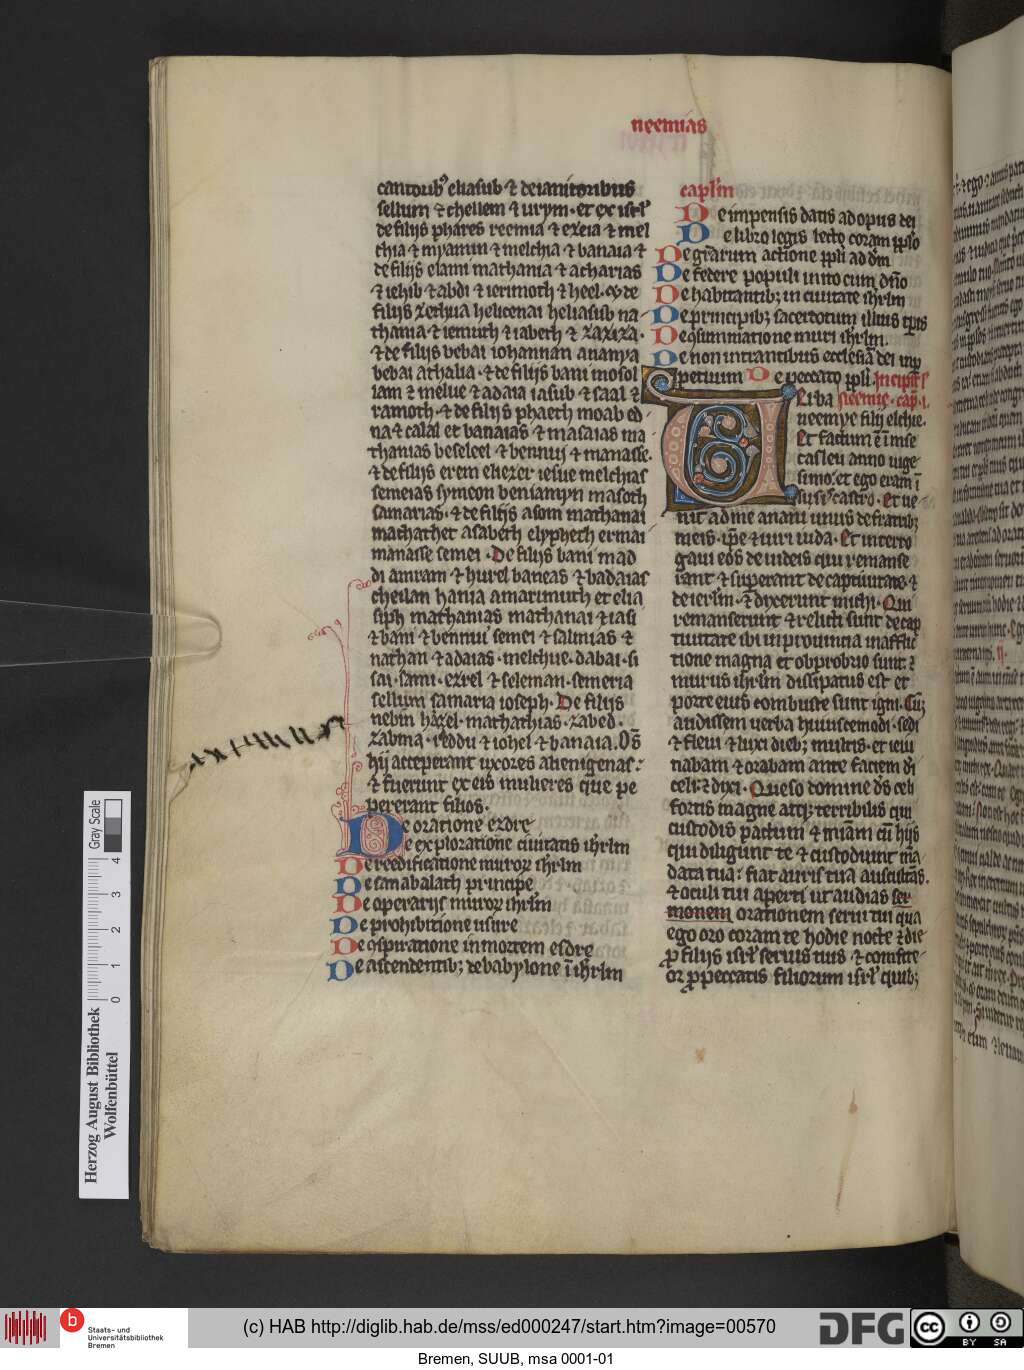 neemias
cantorib⁹ eliasub ⁊ de ianitoribus
sellum ⁊ thellem ⁊ urym · et ex isrl'
de filijs phares remia ⁊ ezeia ⁊ mel
chia ⁊ myamin ⁊ melchia ⁊ banaia ⁊
de filijs elami mathania ⁊ acharias
⁊ iehib ⁊ abdi ⁊ ierimoth ⁊ heel. ex de
filijs zethua helioenai heliasub na
thania ⁊ iemuth ⁊ iabeth ⁊ zaziza ·
⁊ de filijs bebai iohannan ananya
bebai athalia · ⁊ de filijs bani mosol
lam ⁊ melue ⁊ adaia iasub ⁊ saal ⁊
ramoth · ⁊ de filijs phaeth moab ed
na ⁊ calal et banaias ⁊ masaias ma
thanias beseleel ⁊ bennuj ⁊ manasse ·
⁊ de filijs erem eliezer iesue melchias
semeias symeon beniamyn masoth
samarias · ⁊ de filijs asom mathanai
mathathet asabeth elypheth ermai
manasse semei · De filijs bani mad
di amram ⁊ hurel baneas ⁊ badaias
cheilan hania amarimuth et elia
siph mathanias mathanai ⁊ iasi
⁊ bani ⁊ bennui semei ⁊ salmias ⁊
nathan ⁊ adaias · melchue · dabai · si
sai · sami · ezrel ⁊ seleman · semeria
sellum samaria ioseph · De filijs
nebin hazel · mathathias · zabed ·
zabina · ieddu ⁊ iohel ⁊ banaia. Om̄s
hij acceperant uxores alienigenas :
⁊ fuerunt ex eis mulieres que pe
pererant filios ·
De oratione ezdre
De exploratione ciuitatis ihrlm
De reedificatione muroꝝ ihrlm
De sanabalath principe
De operarijs muroꝝ ihrlm
De prohibitione usure
De ꝯspiratione in mortem esdre
De ascendentib; de babylone ī ihrlm
capl'm
De impensis datis ad opus dei
De libro legis lecto coram ppl'o
De gr̄arum actione ppl'i ad dm̄
De federe populi inito cum dn̄o
De habitantib; in ciuitate ihrlm
De principib; sacerdotum illius tp̄is
De ꝯsummatione muri ihrlm.
De non intrantibus ecclesiā dei inp
petuum De peccato ppl'i Incipit l'
Uerba neemie · cap. i.
neemye filij elchie.
Et factum ē ī mēse
casleu anno uige
simo: et ego eram ī
susis castro · Et ue
nit ad me anani unus de fratrib;
meis · ip̄e ⁊ uiri iuda · Et interro
gaui eos de iudeis qui remanse
rant ⁊ supererant de captiuitate · ⁊
de ierlm · ⁊ dixerunt michi · Qui
remanserunt ⁊ relicti sunt de cap
tiuitate ibi in prouincia in afflic
tione magna et obprobrio sunt: ⁊
murus ihrlm dissipatus est et
porte eius combuste sunt igni · Cū;
audissem uerba huiuscemodi · sedi
⁊ fleui ⁊ luxi dieb; multis · et ieiu
nabam ⁊ orabam ante faciem di
celi: ⁊ dixi · Queso domine d̄s celi
fortis magne atq; terribilis qui
custodis pactum ⁊ mīam cū hijs
qui diligunt te ⁊ custodiunt mā
data tua: fiat auris tua auscultās.
⁊ oculi tui aperti ut audias ser
monem orationem serui tui qua
ego oro coram te hodie nocte ⁊ die
ꝓ filijs isrl' seruis tuis ⁊ confite
or ꝓ peccatis filiorum isrl' quib;
Herzog August Bibliothek
Wolfenbüttel
Gray Scale
0 1 2 3 4
b
Staats- und
Universitätsbibliothek
Bremen
(c) HAB http://diglib.hab.de/mss/ed000247/start.htm?image=00570
DFG
cc BY SA
Bremen, SUUB, msa 0001-01